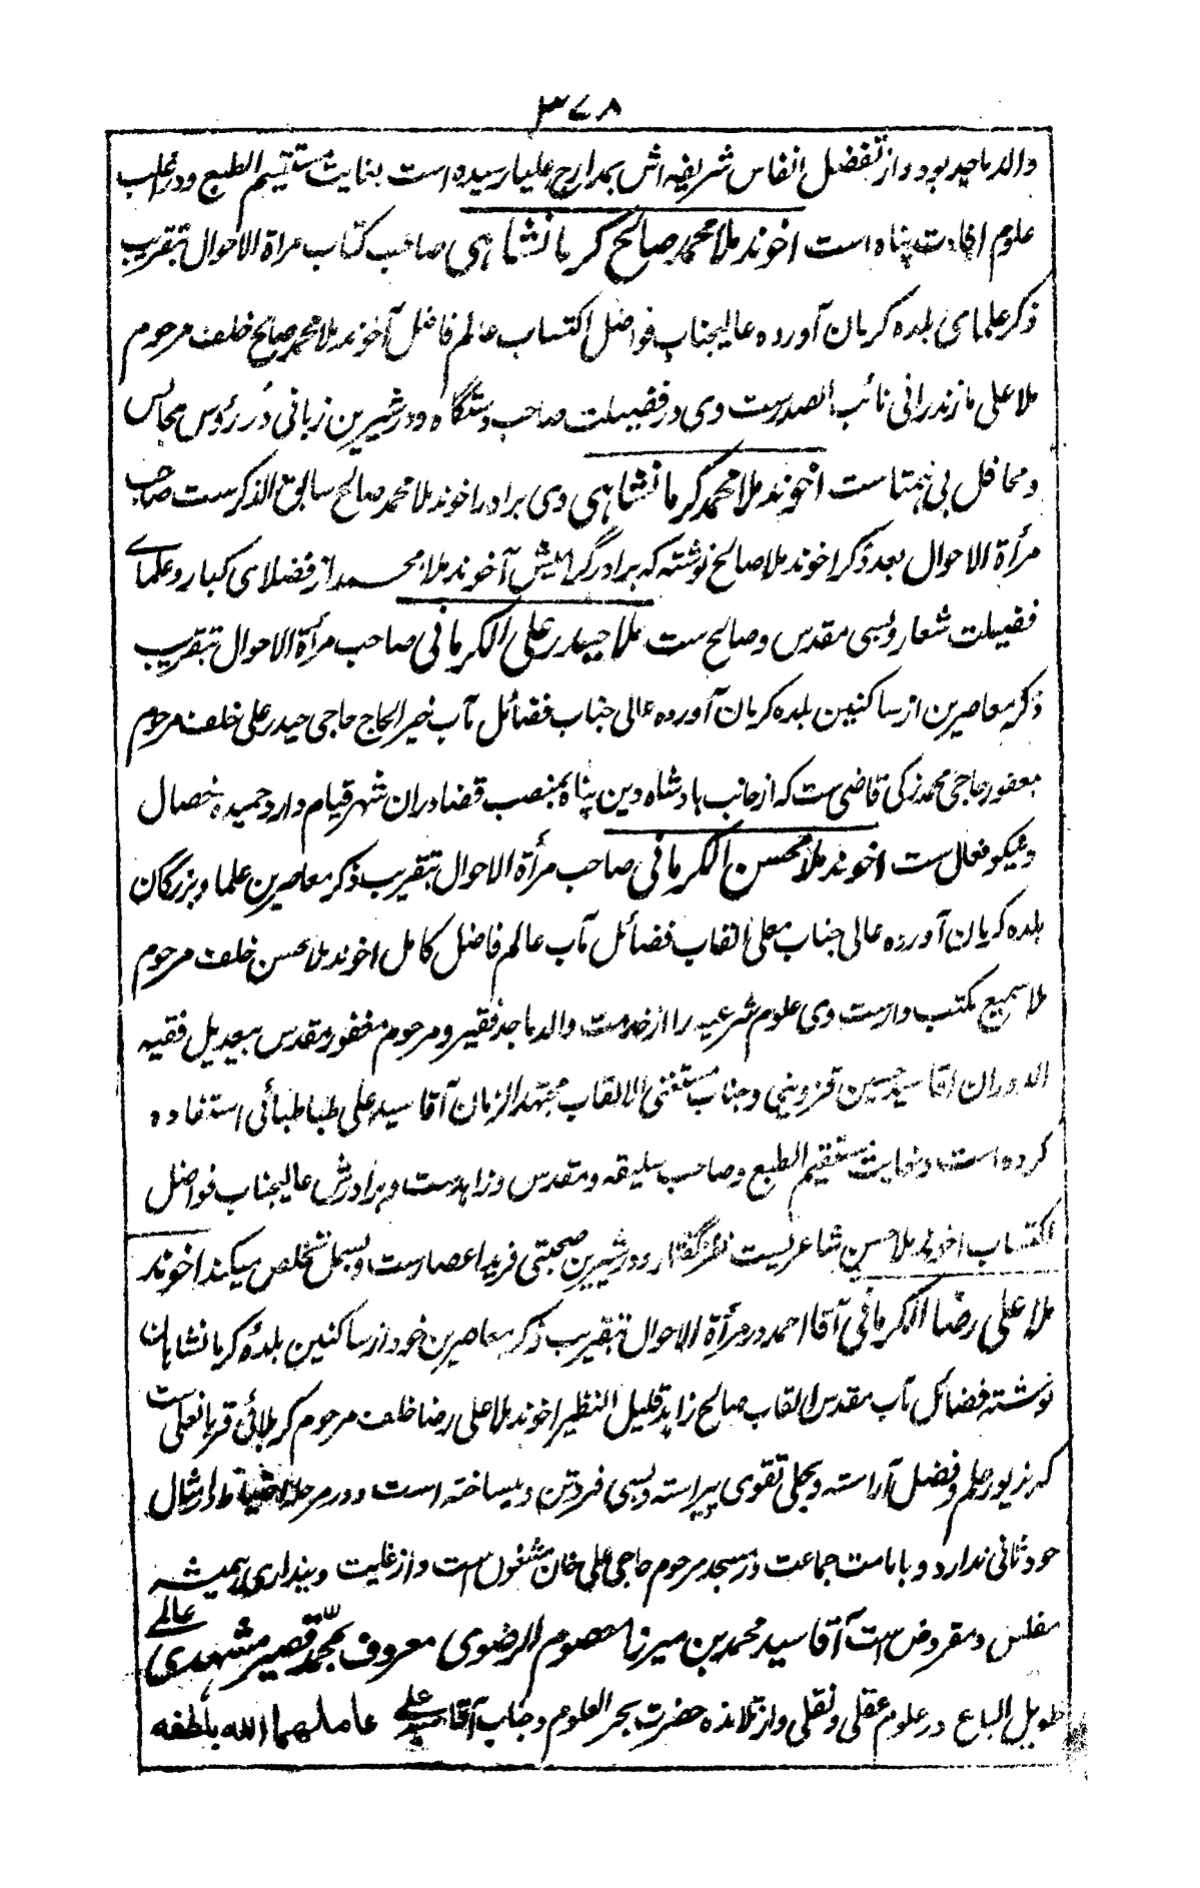 ۳۷۸
والد ماجد بود و از تفضل انفاس شریفه اش بمدارج علیا رسیده است بغایت مستقیم الطبع و در اغلب
علوم افادت پناه است اخوند ملا محمد صالح کرمانشاهی صاحب کتاب مراة الاحوال بتقریب
ذکر علمای بلده کرمان آورده عالیجناب فواضل اکتساب عالم فاضل آخوند ملا محمد صالح خلف مرحوم
ملا علی مازندرانی نائب الصدرست وی در فضیلت صاحب دستگاه و در شیرین زبانی در رؤس مجالس
و محافل بی همتاست اخوند ملا محمد کرمانشاهی وی برادر اخوند ملا محمد صالح سابق الذکرست صاحب
مرأة الاحوال بعد ذکر اخوند ملا صالح نوشته که برادر گرامیش آخوند ملا محمد از فضلای کبار و علمای
فضیلت شعار و بسی مقدس و صالح ست ملا حیدر علی الکرمانی صاحب مرأة الاحوال بتقریب
ذکر معاصرین از ساکنین بلده کرمان آورده عالی جناب فضائل مآب خیر الحاج حاجی حیدر علی خلف مرحوم
مغفور حاجی محمد زکی قاضی ست که از جانب بادشاه دین پناه بمنصب قضا دران شهر قیام دارد حمیده خصال
و نیکو فعال ست اخوند ملا محسن الکرمانی صاحب مرأة الاحوال بتقریب ذکر معاصرین علما و بزرگان
بلده کرمان آورده عالی جناب معلی القاب فضائل مآب عالم فاضل کامل اخوند ملا محسن خلف مرحوم
ملا سمیع مکتب دارست وی علوم شرعیه را از خدمت والد ماجد فقیر و مرحوم مغفور مقدس بیعدیل فقیه
الدوران آقا سید حسین قزوینی و جناب مستغنی الالقاب مجتهد الزمان آقا سید علی طباطبائی استفاده
کرده است و بغایت مستقیم الطبع و صاحب سلیقه و مقدس و زاهدست و برادرش عالیجناب فواضل
اکتساب اخوند ملا حسین شاعریست نغز گفتار و در شیرین صحبتی فرید اعصارست و بسمل تخلص میکند اخوند
ملا علی رضا الکرمانی آقا احمد در مرأة الاحوال بتقریب ذکر معاصرین خود از ساکنین بلدهٔ کرمانشاهان
نوشته فضائل مآب مقدس القاب صالح زاهد قلیل النظیر اخوند ملا علی رضا خلف مرحوم کربلائی قربانعلی ست
که بزیور علم و فضل آراسته و بحلی تقوی پیراسته و بسی فروتن و بیساخته است و در مرحله احتیاط در امثال
خود ثانی ندارد و با امامت جماعت در مسجد مرحوم حاجی علی خان مشغول است و از غایت دینداری همیشه
مفلس و مقروض است آقا سید محمد بن میرزا معصوم الرضوی معروف بمحمد قصیر مشهدی عالمی
طویل الباع در علوم عقلی و نقلی و از تلامذه حضرت بحر العلوم و جناب آقا سید علی عاملهما الله بلطفه